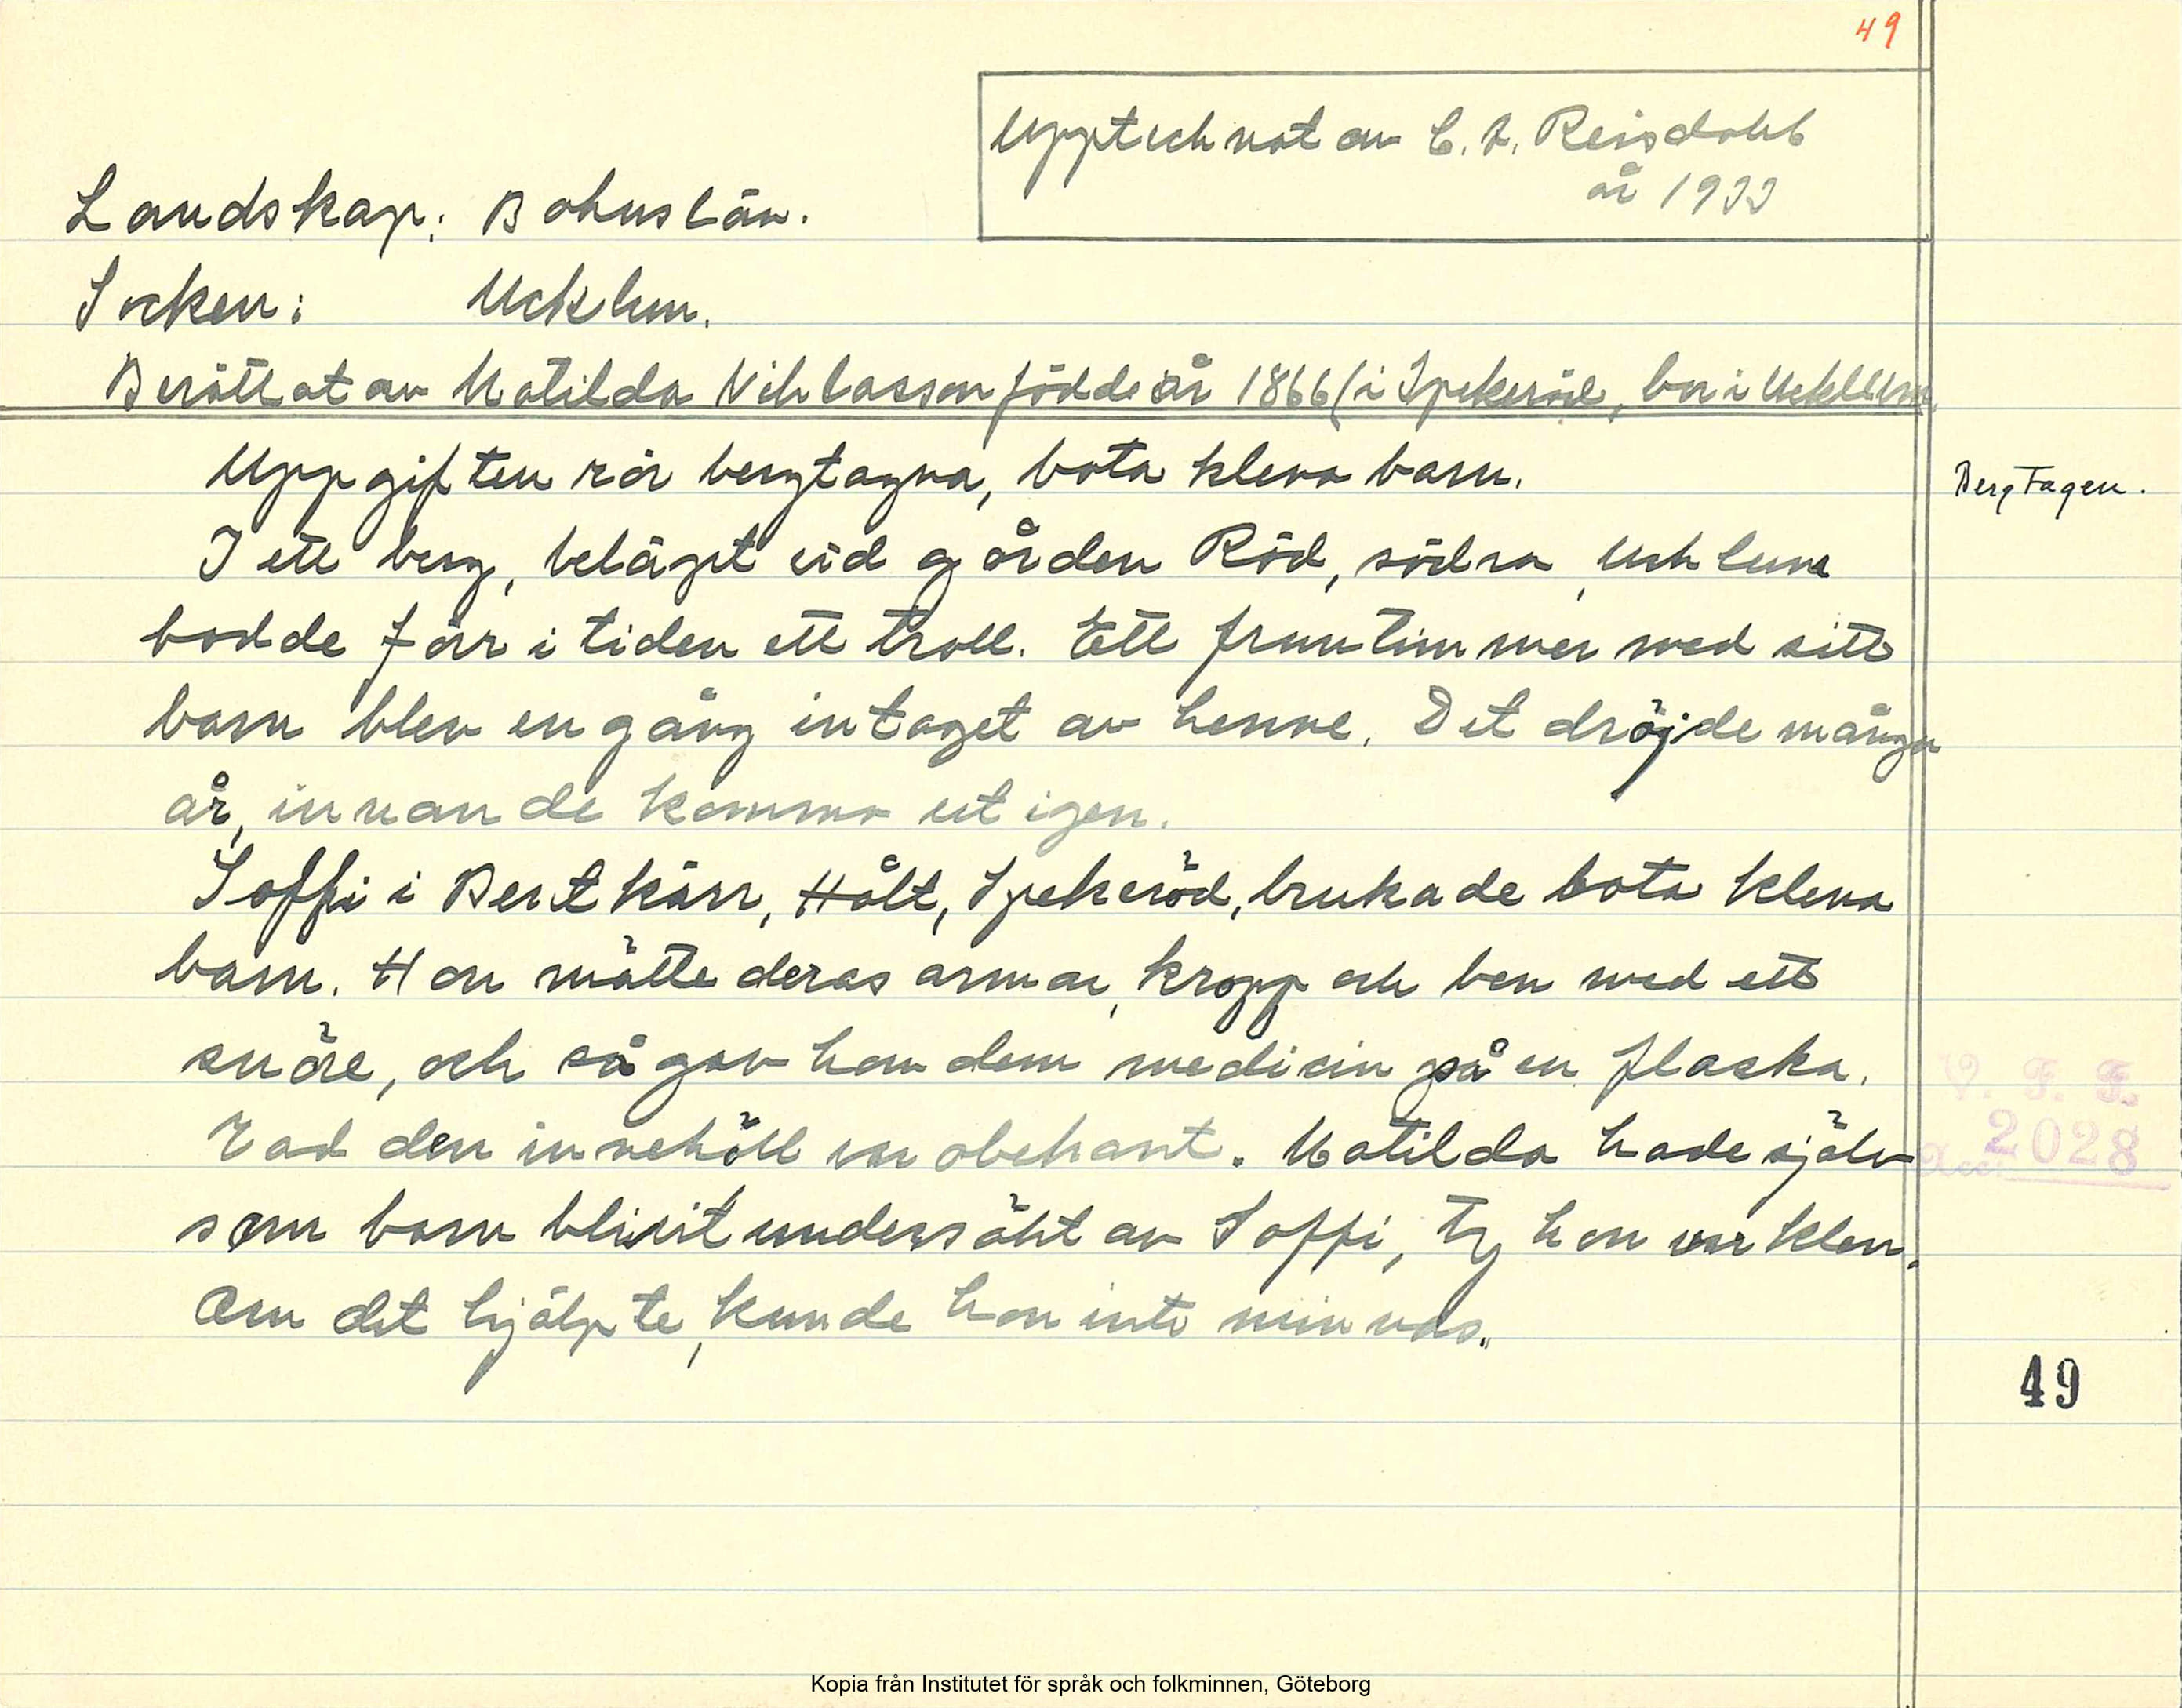 49
Upptecknat av C. A. Reisdahl
år 1933
Landskap: Bohuslän.
Socken: Ucklum.
Berättat av Matilda Niklasson född år 1866 (i Spekeröd, bor i Ucklum
Uppgiften rör bergtagna, bota klena barn.
Bergtagen.
I ett berg, beläget vid gården Röd, södra Ucklum
bodde förr i tiden ett troll. Ett fruntimmer med sitt
barn blev en gång intaget av henne. Det dröjde många
år, innan de komma ut igen.
Soffi i Bertkärr, Hålt, Spekeröd, brukade bota klena
barn. Hon mätte deras armar, kropp och ben med ett
snöre, och så gav hon dem medicin på en flaska.
Vad den innehöll var obekant. Matilda hade själv
som barn blivit undersökt av Soffi, ty hon var klen.
Om det hjälpte, kunde hon inte minnas.
V. F. F.
Acc. 2028
49
Kopia från Institutet för språk och folkminnen, Göteborg